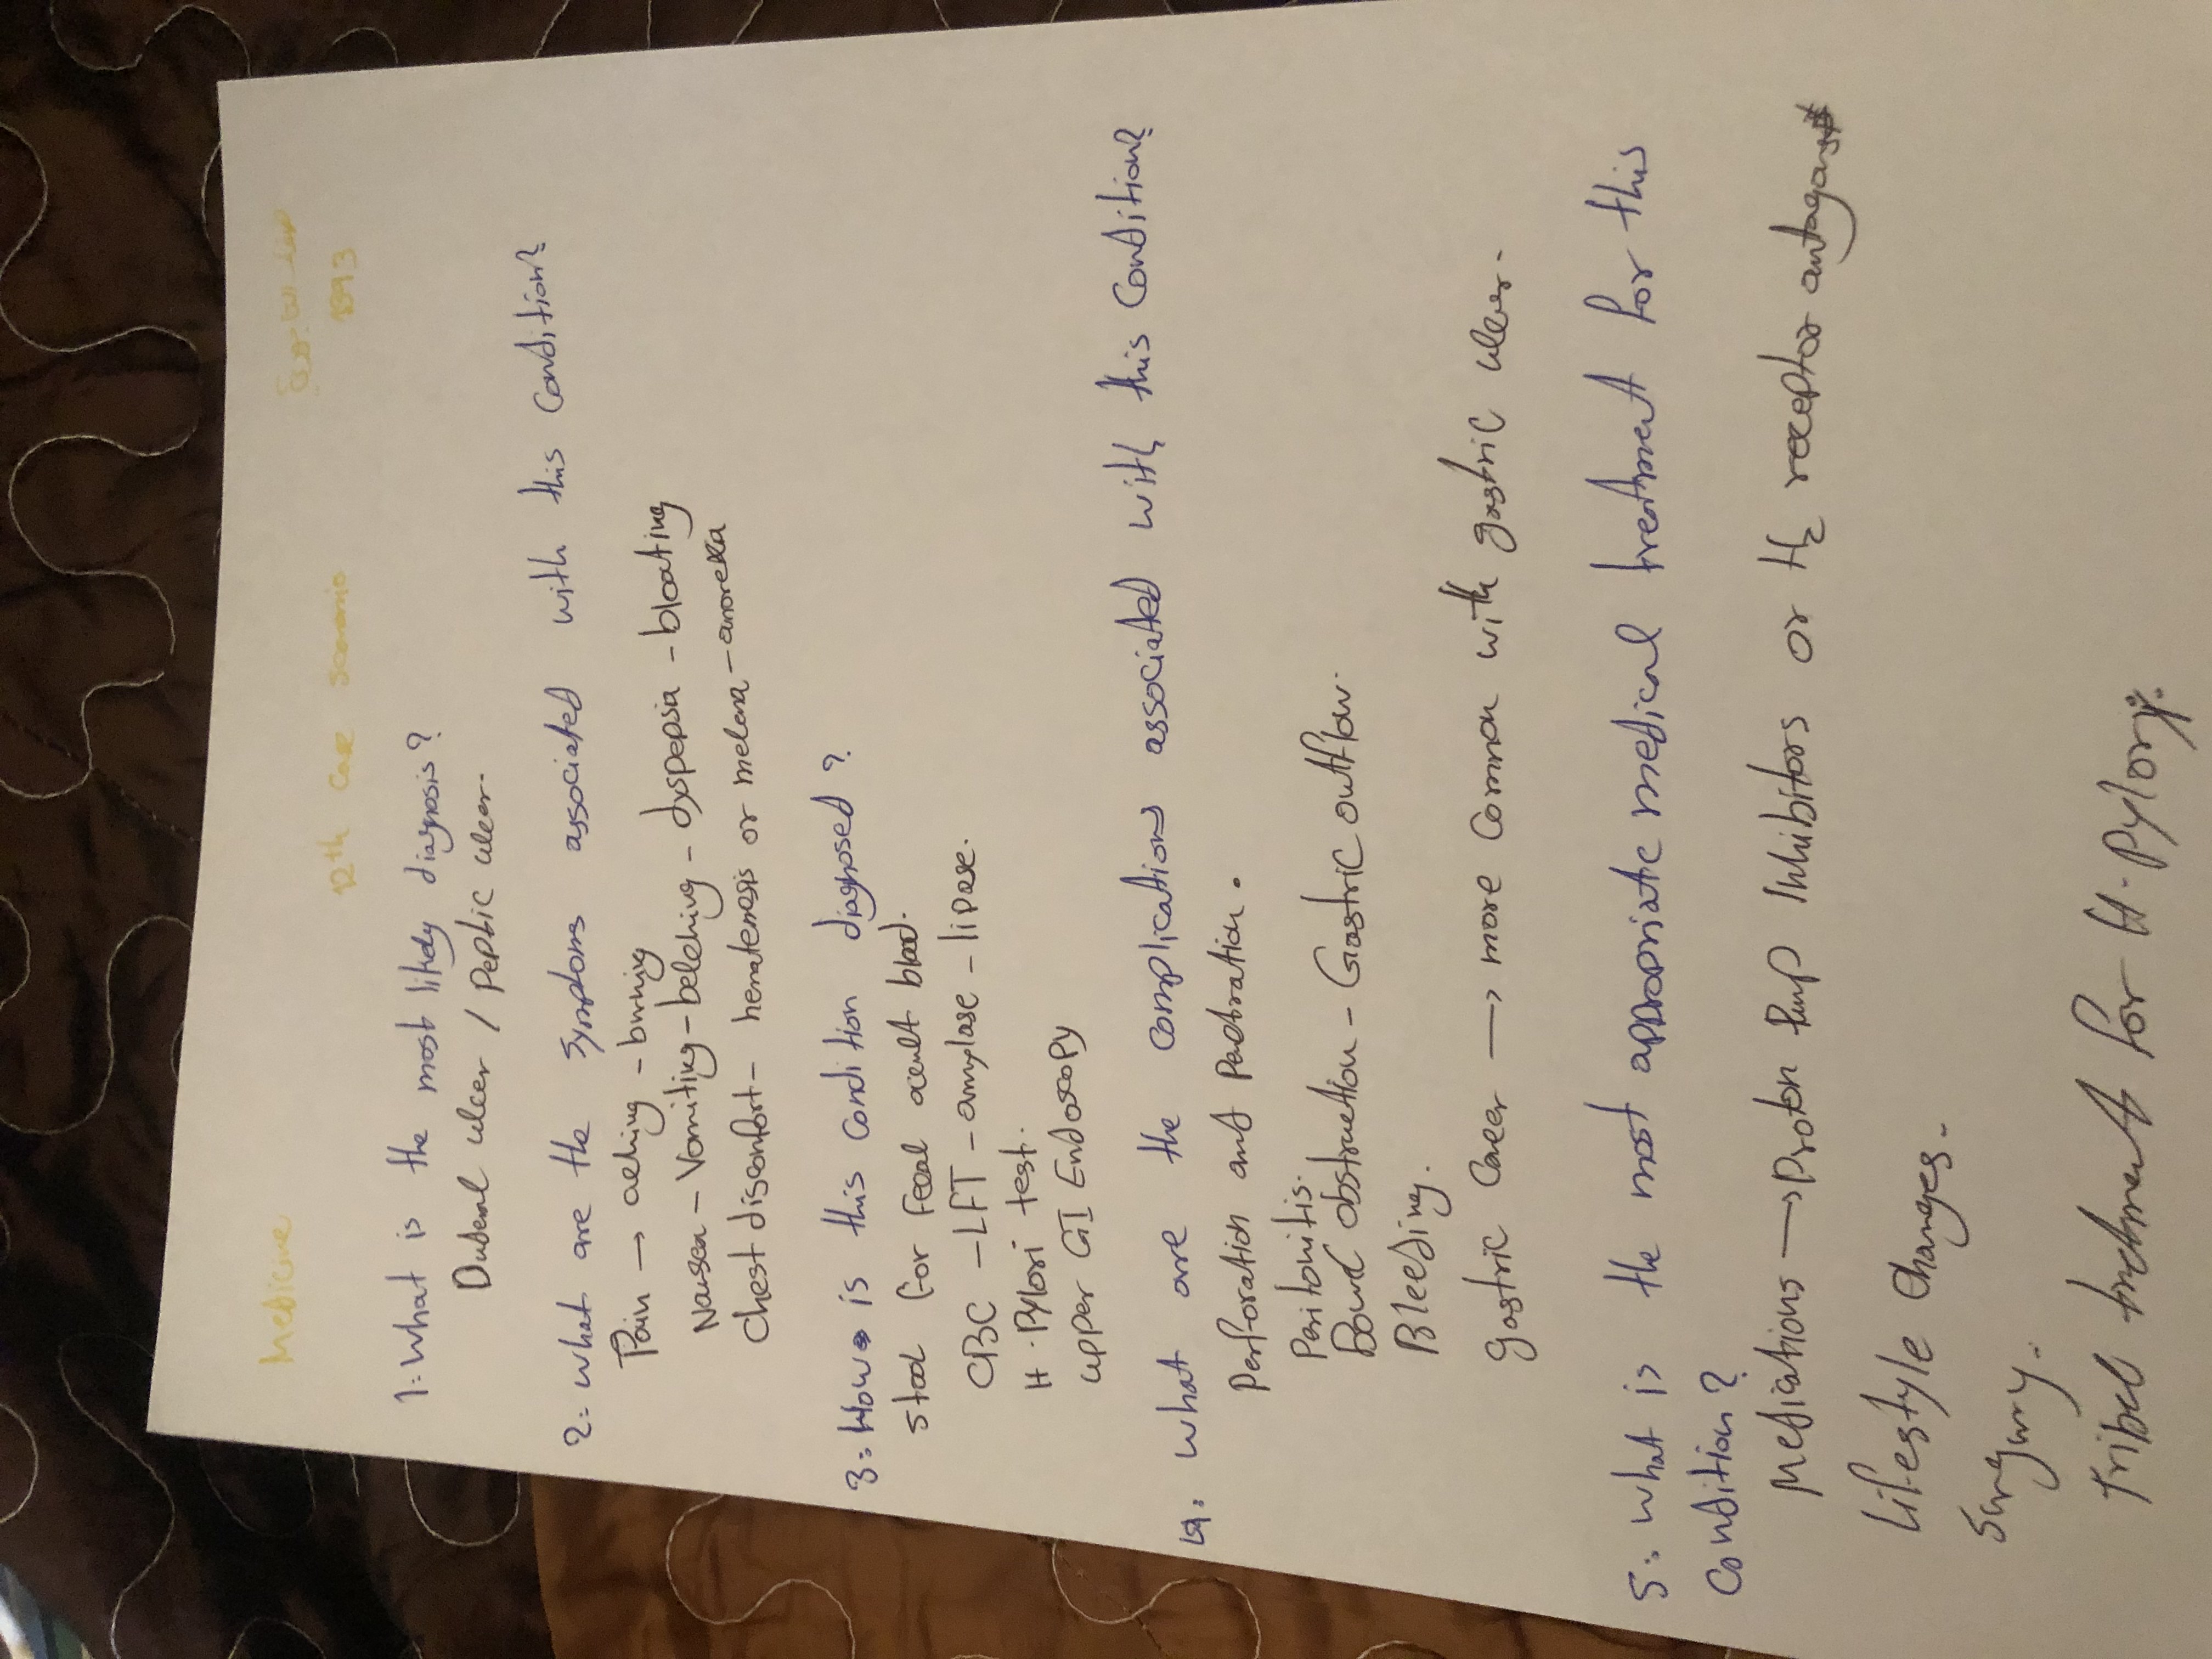 Medicine
12th Case Scenario
1893
1:- What is the most likely diagnosis?
Dudenal ulcer / Peptic ulcer.
2:- what are the symptoms associated with this condition?
Pain → aching - burning
Nausea - Vomiting - belching - dyspepsia - bloating
Chest discomfort - hematemesis or melena - anorexia
3:- How is this condition diagnosed?
stool for fecal occult blood.
CBC - LFT - amylase - lipase.
H. Pylori test.
upper GI Endoscopy
4:- what are the complications associated with this condition?
Perforation and Penetration.
Peritonitis.
Bowel obstruction - Gastric outflow.
Bleeding.
gastric Cancer → more common with gastric ulcer.
5:- what is the most appropriate medical treatment for this
condition?
Medications → Proton Pump Inhibitors or H2 receptor antagonist
Lifestyle changes.
Surgury.
Tribel treatment for H. Pylory.